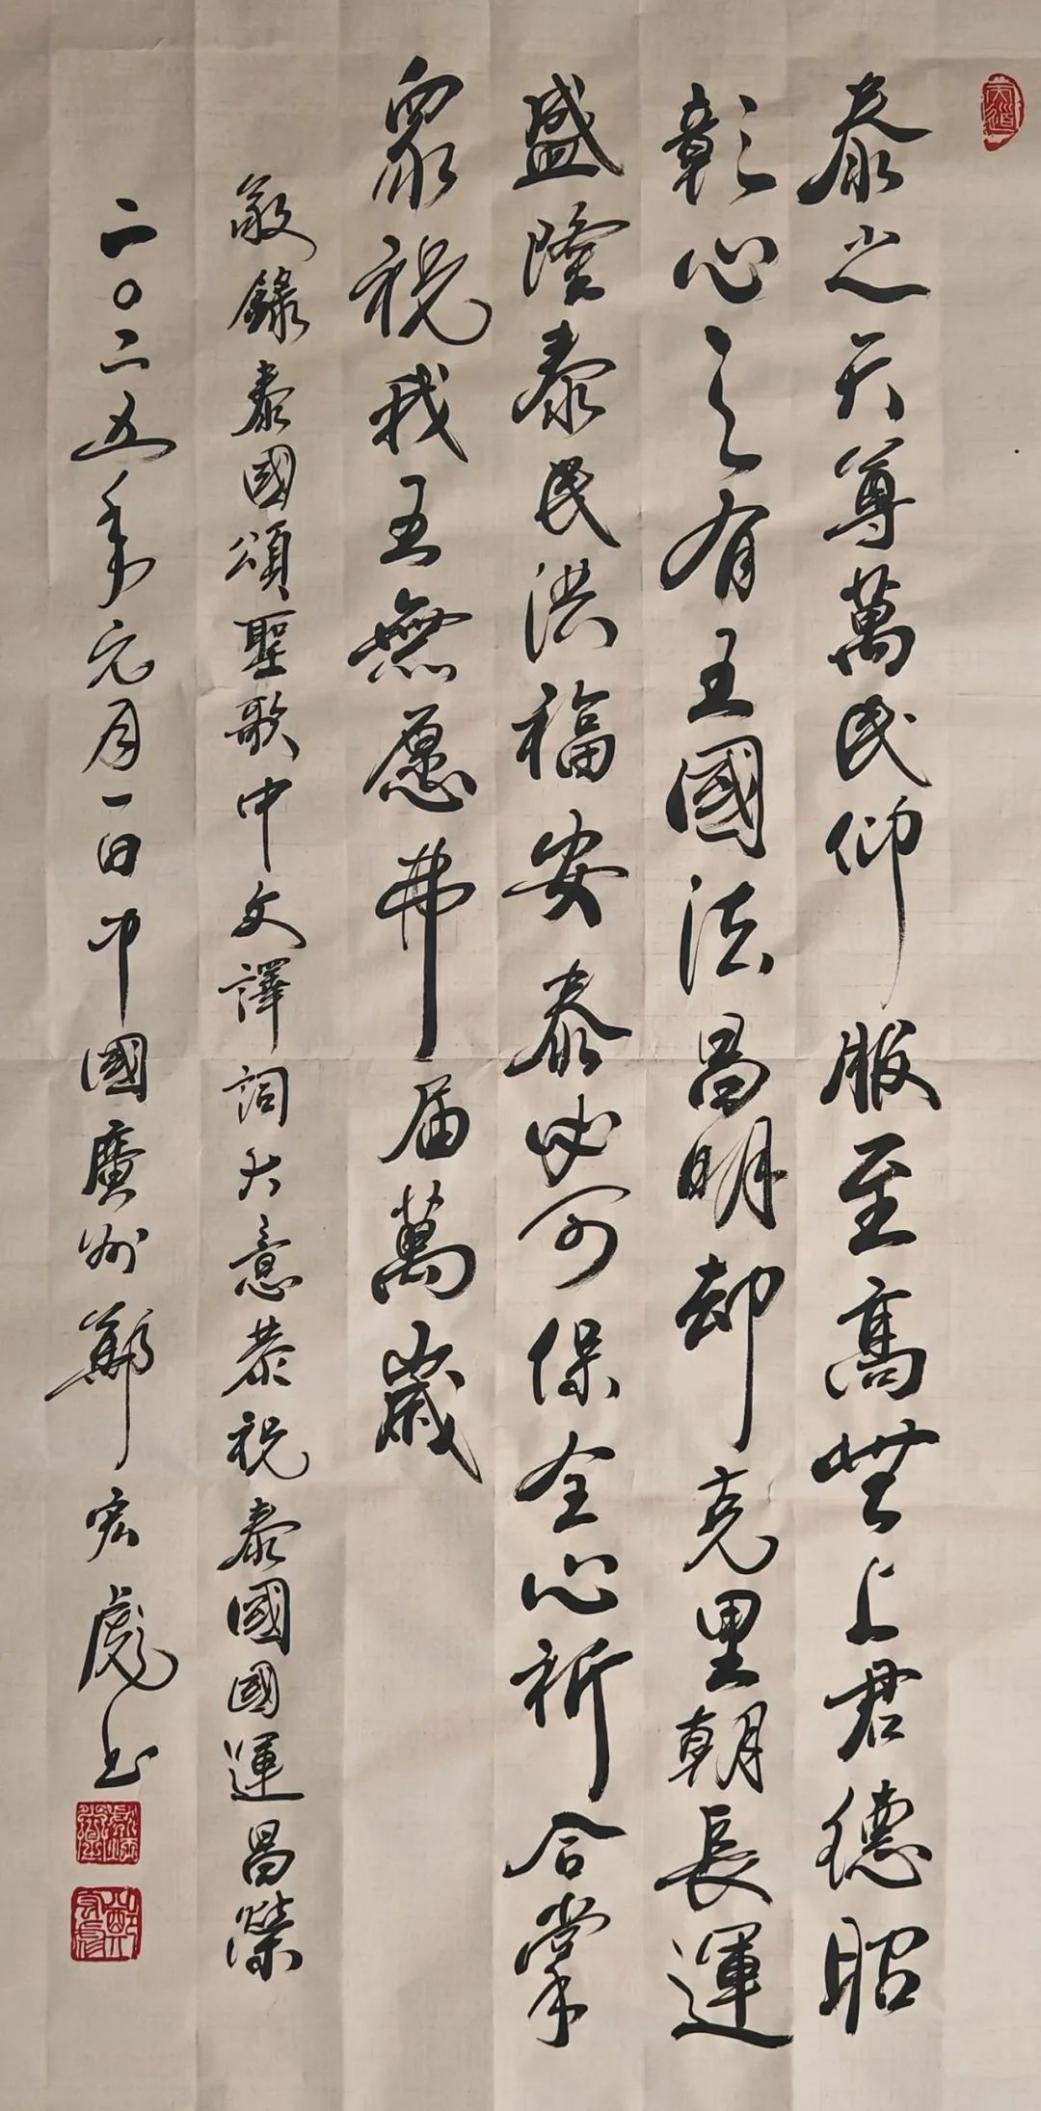 泰之天尊萬民仰服至高無上君德昭
彰心之有王國法昌明却克里朝長運
盛隆泰民洪福安泰必可保全心祈合掌
眾祝我王無愿弗届萬歲
敬錄泰國頌聖歌中文譯詞大意恭祝泰國國運昌榮
二〇二五年元月一日中國廣州鄭宏彪书